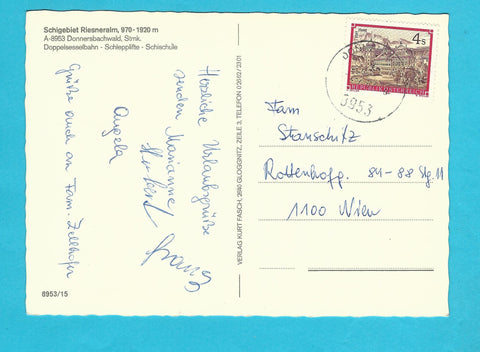 Schigebiet Riesneralm, 970 - 1920 m
A-8953 Donnersbachwald, Stmk.
Doppelsesselbahn - Schlepplifte - Schischule
Herzliche Urlaubsgrüße
senden Marianne
Herbert Franz
Angela
Grüße auch an Fam. Zellhofer
8953/15
VERLAG KURT FASCH, 2640 GLOGGNITZ, ZEILE 3, TELEFON 0 26 62 / 23 01
4 S
REPUBLIK ÖSTERREICH
8953
Fam
Stanschitz
Rottenhofg. 84-88 Stg. 11
1100 Wien